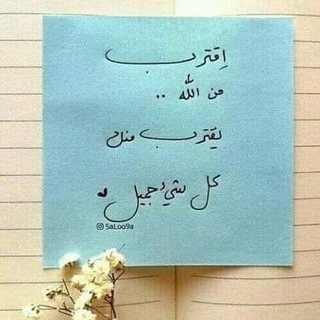 اِقترب
من الله ..
يقترب منك
كل شيء جميل
5aLoo9a